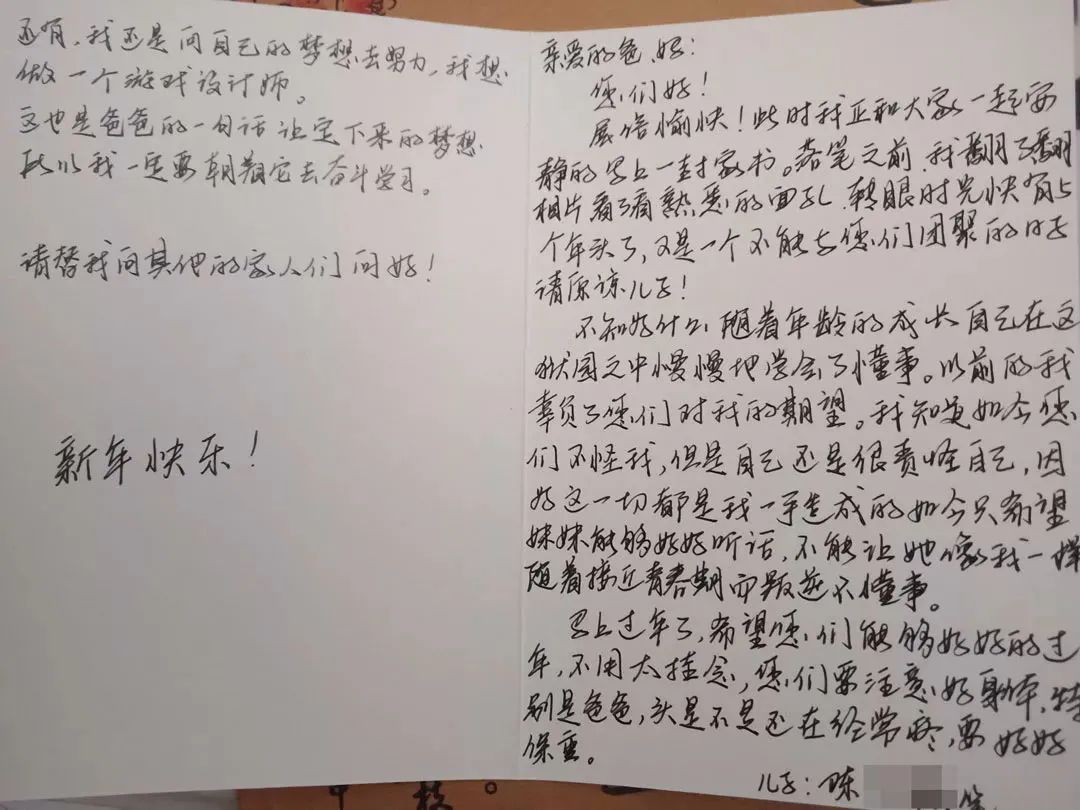 亲爱的爸、妈:
您们好!
展信愉快!此时我正和大家一起安
静的写上一封家书。落笔之前,我翻了翻
相片看了看熟悉的面孔,转眼时光快有5
个年头了,又是一个不能与您们团聚的日子
请原谅儿子!
不知为什么随着年龄的成长自己在这
狱园之中慢慢地学会了懂事。以前的我
辜负了您们对我的期望。我知道如今您
们不怪我,但是自己还是很责怪自己,因
为这一切都是我一手造成的如今只希望
妹妹能够好好听话,不能让她像我一样
随着接近青春期而叛逆不懂事。
马上过年了,希望您们能够好好的过
年,不用太挂念,您们要注意好身体,特
别是爸爸,头是不是还在经常疼,要好好
保重。
儿子:陈
还有,我还是向自己的梦想去努力,我想
做一个游戏设计师。
这也是爸爸的一句话让定下来的梦想
所以我一定要朝着它去奋斗学习。
请替我向其他的家人们问好!
新年快乐!
枝。